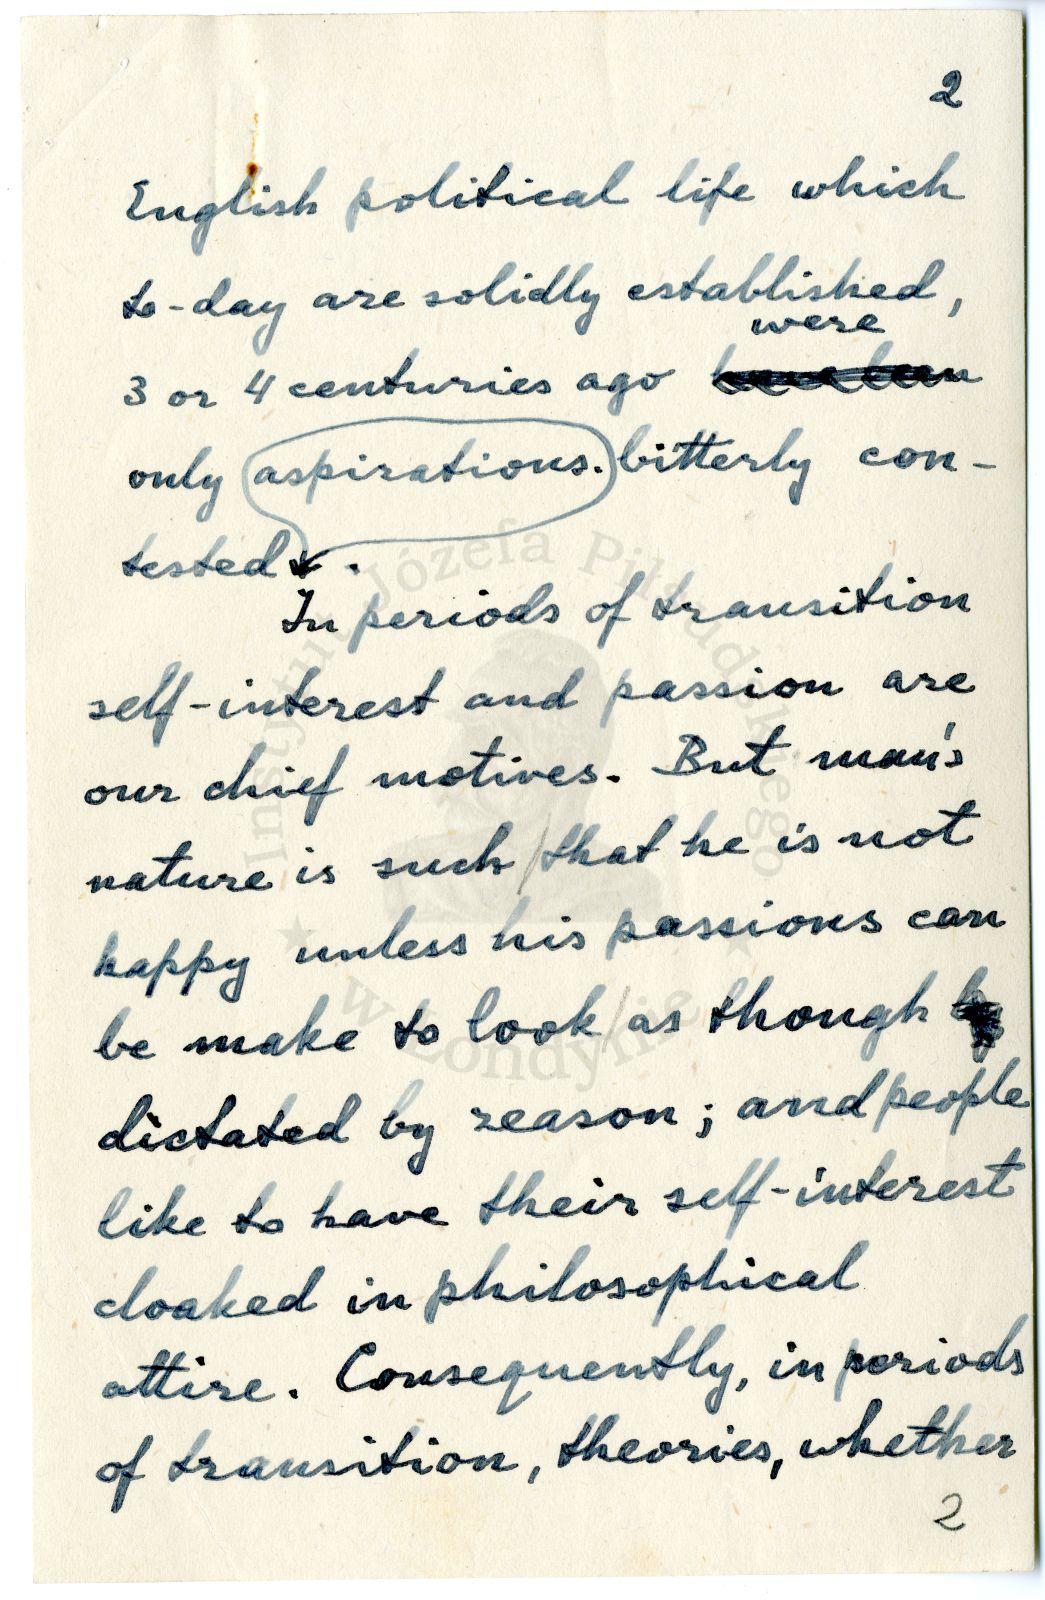 2
English political life which
to-day are solidly established,
were
3 or 4 centuries ago have been
only aspirations. bitterly con-
tested.
In periods of transition
self-interest and passion are
our chief motives. But man's
nature is such / that he is not
happy unless his passions can
be make to look / as though
dictated by reason; and people
like to have their self-interest
cloaked in philosophical
attire. Consequently, in periods
of transition, theories, whether
2
Instytut Józefa Piłsudskiego
w Londynie